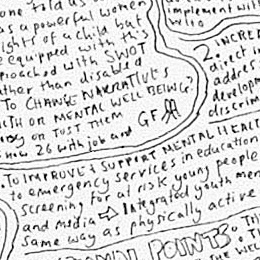 one told as
as a powerful women
ights of a child but
e equipped with this
proached with SWOT
ather than disabled
To CHANGE NARRATIVES
ON MENTAL WELL BEING?
on JUST THEM
now 26 with job and
GF
implement wi
who
2. INCRE
direct i
addres
develop
discrim
To IMPROVE & SUPPORT MENTAL HEALT
to emergency services in education
screening for at risk young people
and media ⇨ Integrated youth men
same way as physically active
POINTS